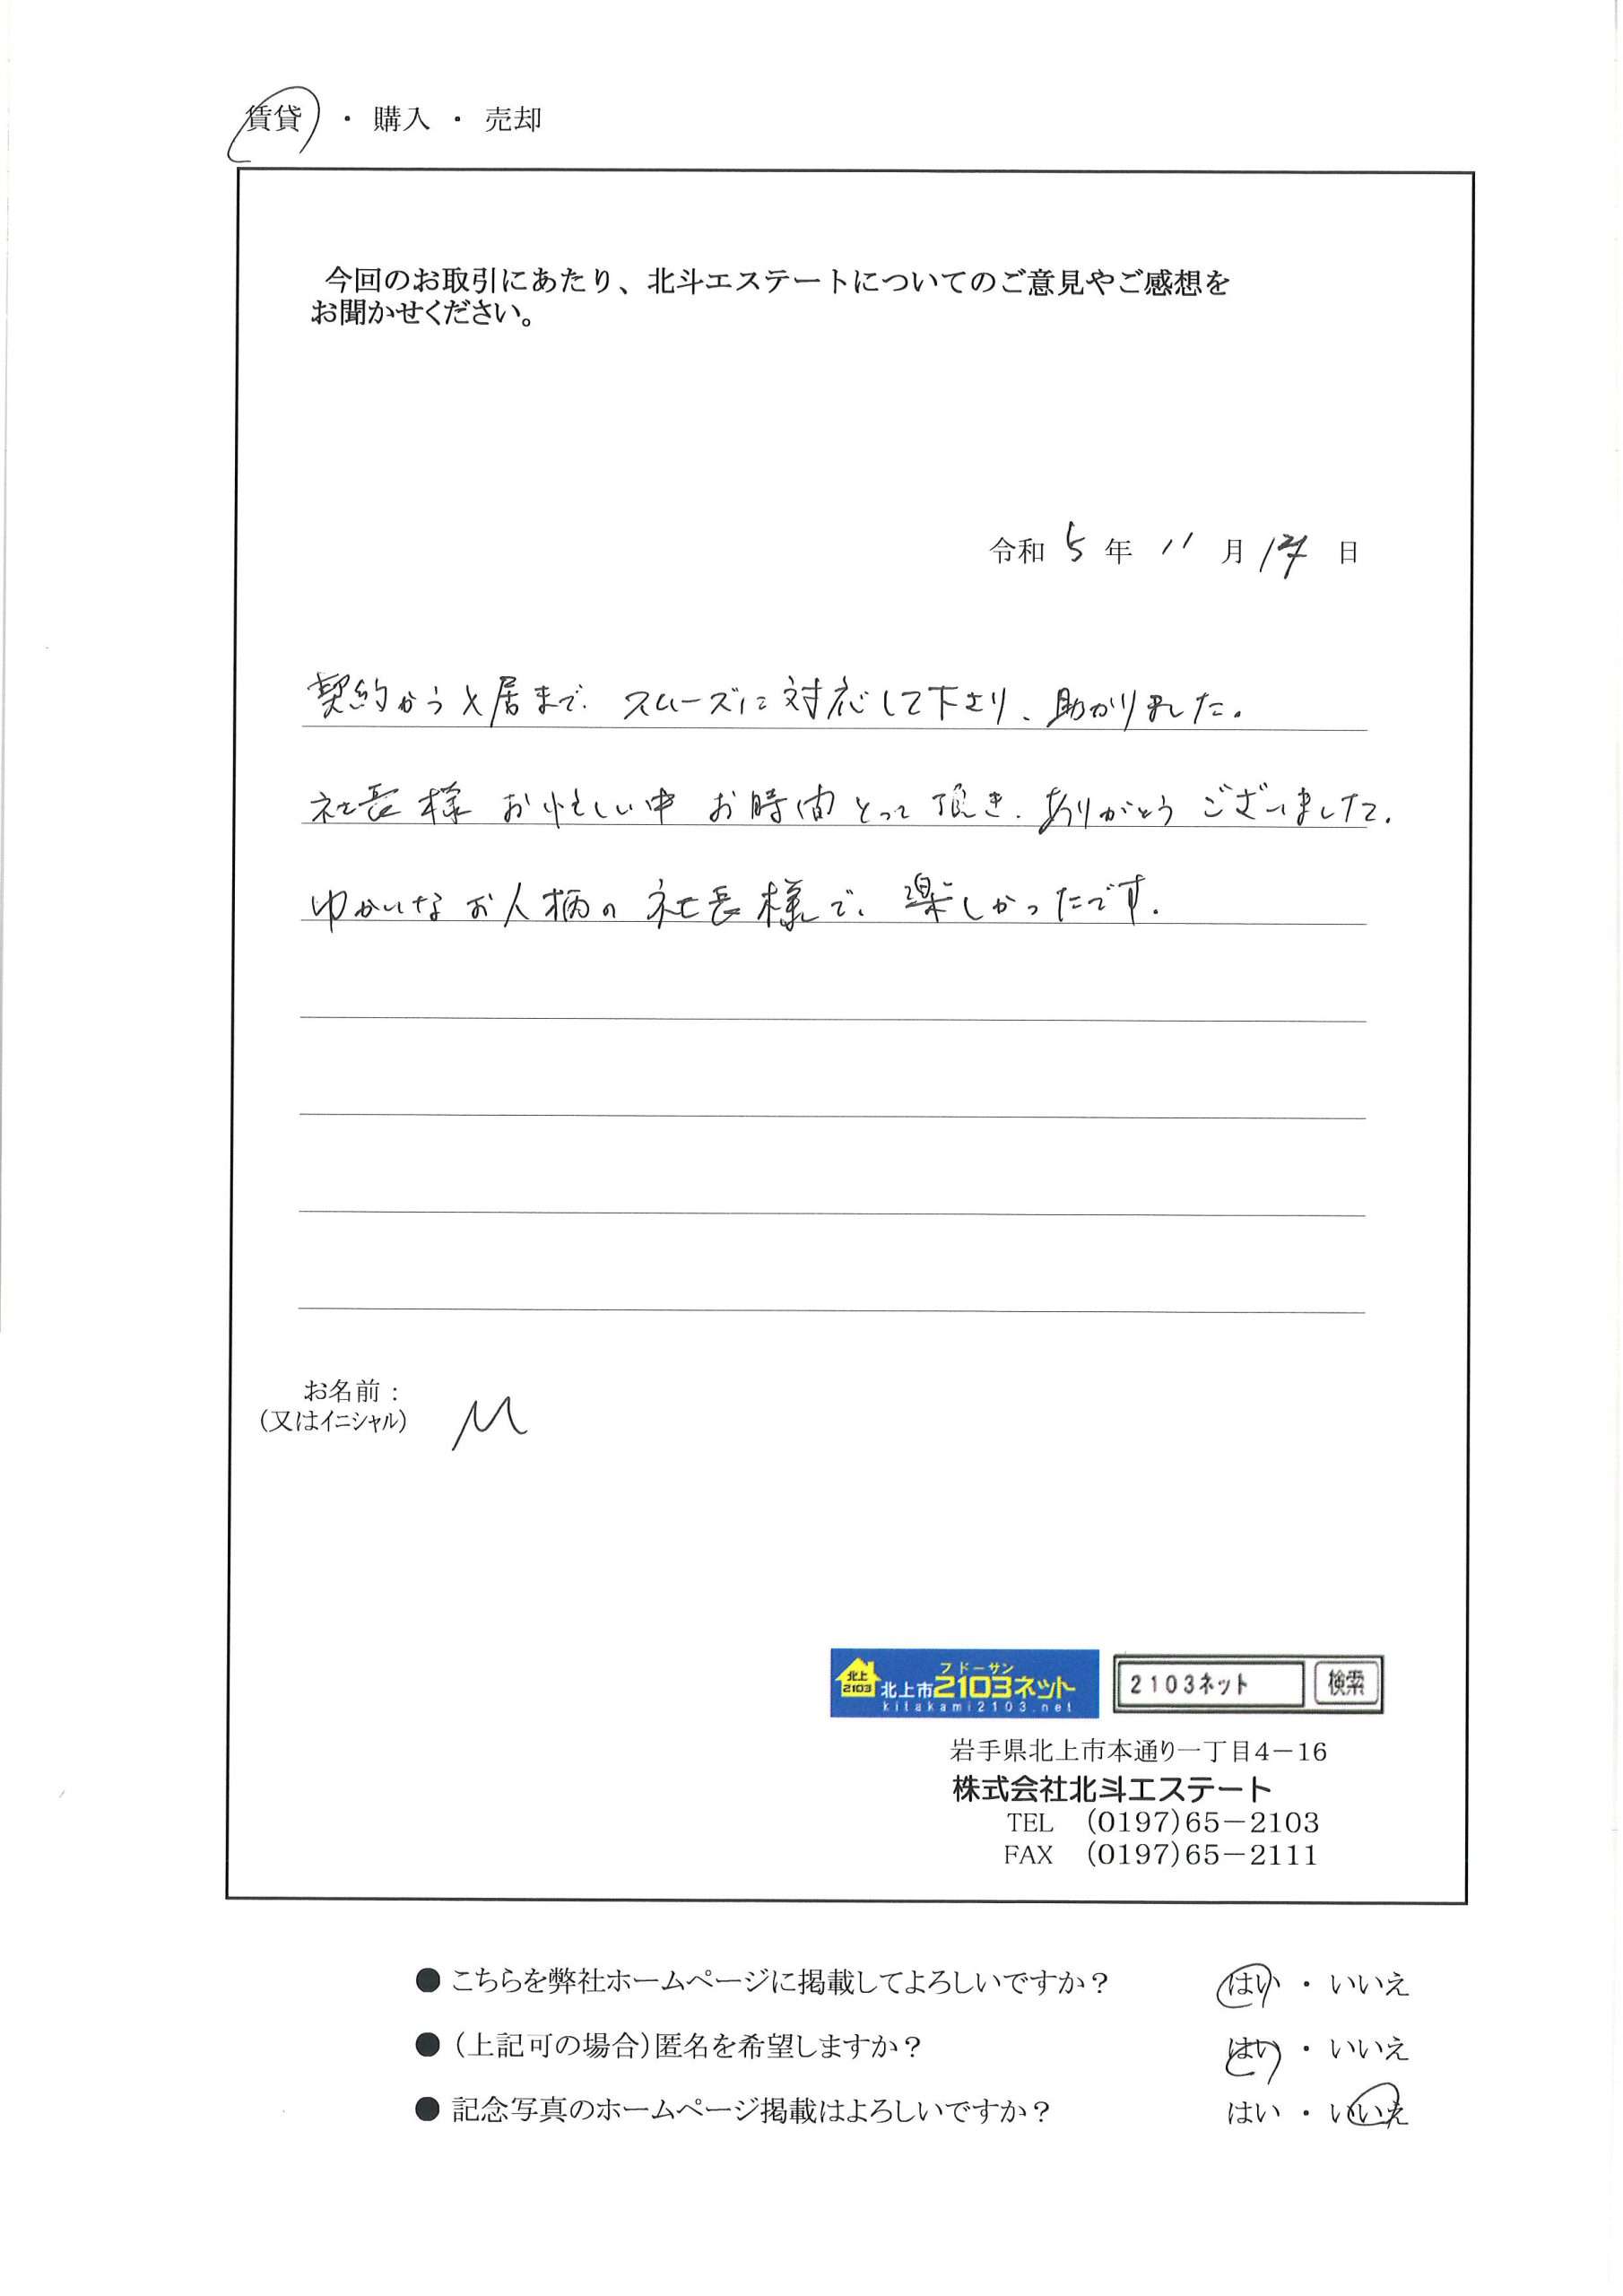 賃貸 ・ 購入 ・ 売却
今回のお取引にあたり、北斗エステートについてのご意見やご感想を
お聞かせください。
令和 5 年 11 月 日
契約から入居まで、スムーズに対応して下さり、助かりました。
社長様 お忙しい中 お時間とって頂き、ありがとうございました。
ゆかいなお人柄の社長様で、楽しかったです。
お名前：
（又はイニシャル） M
北上
2103
フドーサン
北上市2103ネット
kitakami2103.net
2103ネット 検索
岩手県北上市本通り一丁目4－16
株式会社北斗エステート
TEL （0197）65－2103
FAX （0197）65－2111
● こちらを弊社ホームページに掲載してよろしいですか？ はい ・ いいえ
● （上記可の場合）匿名を希望しますか？ はい ・ いいえ
● 記念写真のホームページ掲載はよろしいですか？ はい ・ いいえ